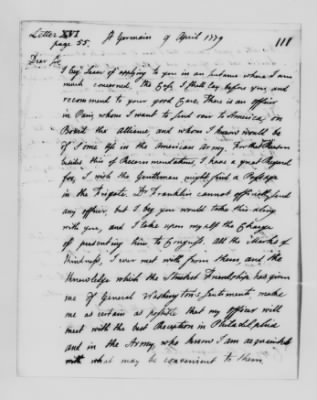 Letter XVI
page 55.
St Germain 9 April 1779
111
Dear Sir
I beg leave of applying to you in an instance where I am
much concerned, the Case I shall lay before you and
recommend to your good Care. There is an officer
in Paris, whom I want to send over to America, on
Board the alliance, and whom I know would be
of some use in the American Army. For that Reason
besides this of Recommendations, I have a great Regard
for, I wish the Gentleman might find a Passage
in the Frigate. Dr Franklin cannot officially send
any officer, but I beg you would take this along
with you, and I take upon myself the Charge
of presenting him to Congress. all the Marks of
Kindness, I ever met with from them, and the
Knowledge which the strictest Friendship has given
me of General Washington's Sentiments make
me as certain as possible that my officer will
meet with the best Reception in Philadelphia
and in the Army, who know I am acquainted
with what may be convenient to them